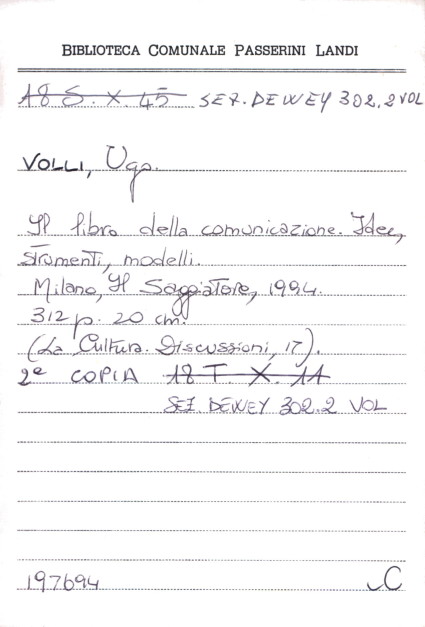 BIBLIOTECA COMUNALE PASSERINI LANDI
18 S. X. 45 SEZ. DEWEY 302.2 VOL
VOLLI, Ugo.
Il libro della comunicazione. Idee,
strumenti, modelli.
Milano, Il Saggiatore, 1994.
312 p. 20 cm.
(La Cultura. Discussioni, 17).
2ª COPIA 18 T. X. 11
SEZ. DEWEY 302.2 VOL
197694 C